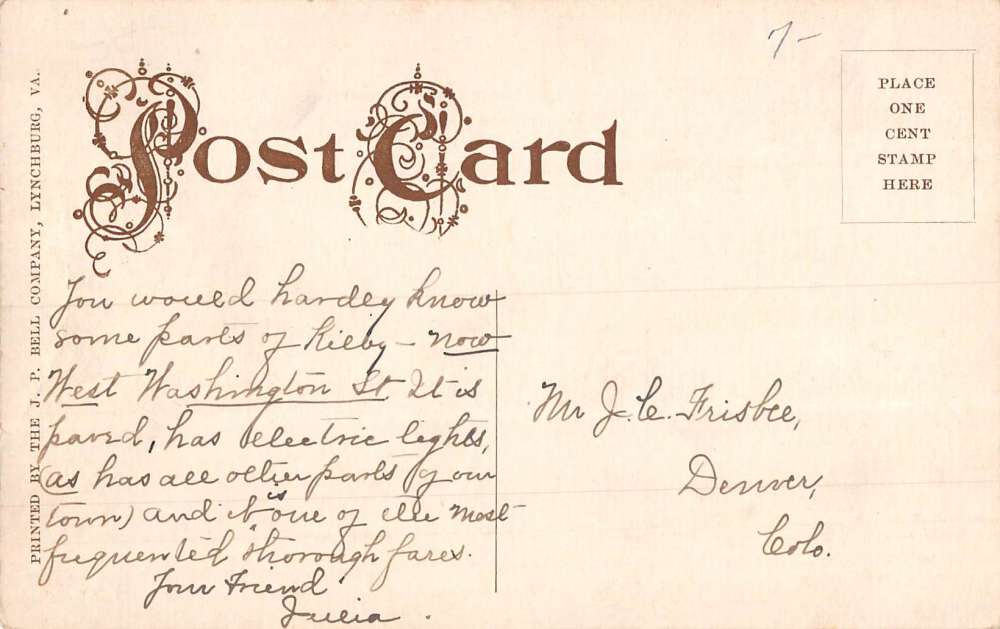 7-
Post Card
PLACE
ONE
CENT
STAMP
HERE
PRINTED BY THE J. P. BELL COMPANY, LYNCHBURG, VA.
You would hardley know
some parts of Kilby - now
West Washington St It is
paved, has electric lights,
(as has all other parts of our
town) and it is one of the most
frequented thorough fares.
Your Friend
Julia.
Mr J. C. Frisbee,
Denver,
Colo.